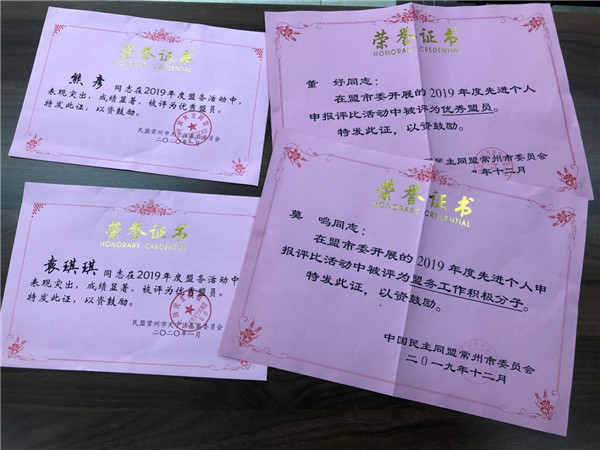 荣誉证书
HONORARY CREDENTIAL
熊彦 同志在2019年度盟务活动中，
表现突出，成绩显著，被评为优秀盟员。
特发此证，以资鼓励。
民盟常州市天宁法基层委员会
二〇二〇年一月
荣誉证书
HONORARY CREDENTIAL
董 好同志：
在盟市委开展的2019年度先进个人
申报评比活动中被评为优秀盟员。
特发此证，以资鼓励。
民主同盟常州市委员会
年十二月
荣誉证书
HONORARY CREDENTIAL
袁琪琪 同志在2019年度盟务活动中
表现突出，成绩显著，被评为优秀盟员。
特发此证，以资鼓励。
民盟常州市天宁法基层委员会
二〇二〇年一月
荣誉证书
HONORARY CREDENTIAL
莫 鸣同志：
在盟市委开展的2019年度先进个人申
报评比活动中被评为盟务工作积极分子。
特发此证，以资鼓励。
中国民主同盟常州市委员会
二〇一九年十二月